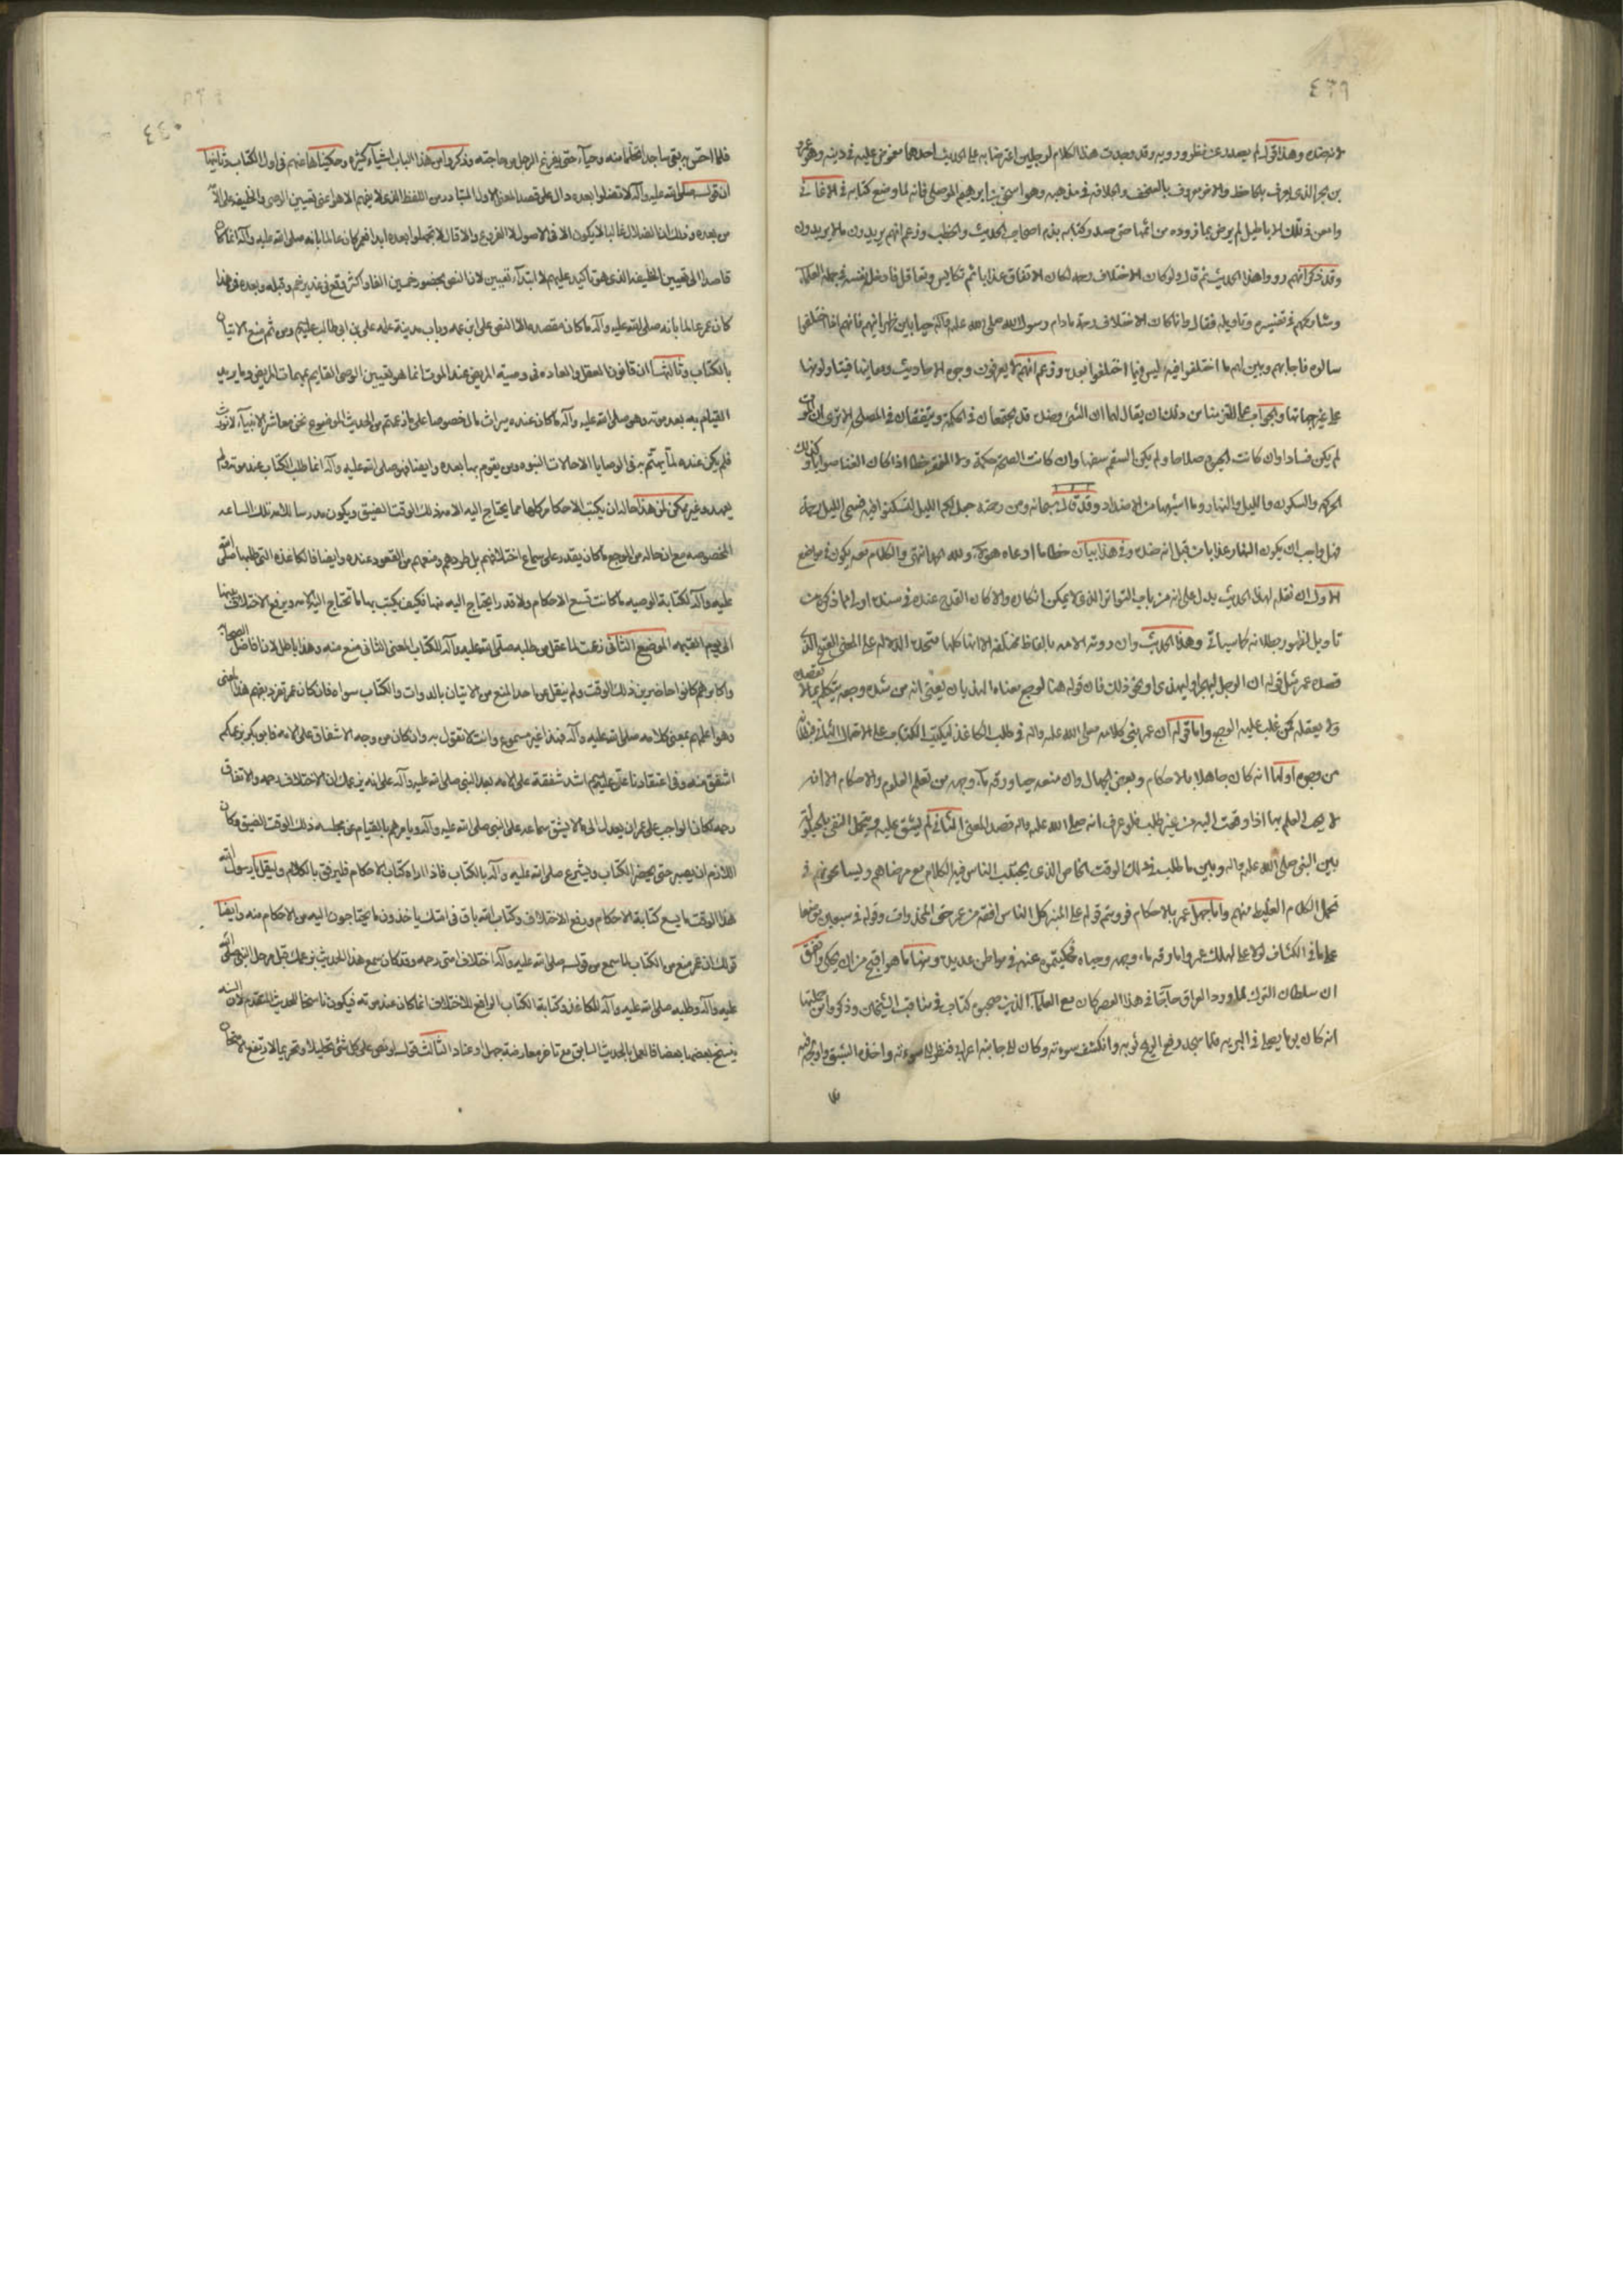 ٤٣٩
لا نضده وهذا قول لم يصدر عن نظر وروية وقد وجدت هذا الكلام لرجلين اعترضا به على الحديث احدهما مغموض عليه في دينه وهو عمرو
بن بحر الذي يعرف بالجاحظ والاخر معروف بالسخف والخلاعة في مذهبه وهو اسحق بن ابراهيم الموصلي فانه لما وضع كتابه في الاغاني
وامعن في تلك الاباطيل لم يرض بما تزوده من اثمها حتى صدر كتابه بذم اصحاب الحديث والحطب وزعم انهم يروون ما لا يدرون
وقد ذكر انهم رووا هذا الحديث ثم قال ولو كان الاختلاف رحمة لكان الاتفاق عذابا ثم تكايس وتعاقل فادخل نفسه في جملة العلماء
وشاركهم في تفسيره وتاويله فقال وانما كان الاختلاف رحمة مادام رسول الله صلى الله عليه وآله حيا بين ظهرانيهم فانهم اذا اختلفوا
سالوه فاجابهم وبين لهم ما اختلفوا فيه ليس فيما اختلفوا بعده وزعم انهم لا يعرفون وجوه الاحاديث ومعانيها فيتاولونها
على غير جهاتها والجواب عما الزمنا من ذلك ان يقال لهما ان الشئ وضده قد يجتمعان في الحكمة ويتفقان في المصلحة الا ترى ان الموت
لم يكن فسادا وان كانت الحيوة صلاحا ولم يكن السقم سفها وان كانت الصحة حكمة ولا الفقر خطا اذا كان الغنا صوابا وكذلك
الحركه والسكون والليل والنهار وما اشبهها من الاضداد وقد قال سبحانه ومن رحمته جعل لكم الليل لتسكنوا فيه فسمى الليل رحمة
فهل واجب ان يكون النهار عذابا من قبل انه ضده وفي هذا بيان خطا ما ادعاه هؤلاء ولله الحمد انتهى والكلام معه يكون في مواضع
الاول ان نقله لهذا الحديث يدل على انه من باب التواتر الذي لا يمكن انكاره والا كان القدح عنده في سنده اولى مما ذكره من
تاويل لظهور بطلانه كما سياتي وهذا الحديث وان روته الامه بالفاظ مختلفة الا انها كلها متحدة الدلالة على المعنى القبيح الذي
قصده عمر مثل قوله ان الرجل ليهجر او ليهذي او نحو ذلك فان قوله هنا لوجع معناه الهذيان يعني انه من شدة وجعه يتكلم بما لا يقصده
ولا يعقله كمن غلب عليه الوجع واما قوله ان عمر انثنى كلامه صلى الله عليه واله في طلب الكاغذ ليكتب الكتاب على الاحتمال الثاني فبطلان
من وجوه اولها انه كان جاهلا بالاحكام وبعض الجهال وان منعه حياؤه ورقة ماء وجهه من تعلم العلوم والاحكام الا انه
لا يجهل العلم بها اذا وقعت اليه من غير طلب فلو عرف انه صلى الله عليه واله قصد المعنى الثاني لم يشق عليه ويتحمل النفي بالحيلولة
بين النبي صلى الله عليه واله وبين ما طلب في ذلك الوقت الخاص الذي يجتنب الناس فيه الكلام مع مرضاهم ولسيما نحوهم في
تحمل الكلام الغليظ منهم واما جهل عمر بالاحكام فرويتم قوله على المنبر كل الناس افقه من عمر حتى المخدرات وقوله في سبعين موضعا
على ما في الكشاف لولا علي لهلك عمر واما رقة ماء وجهه وحياه فحكيتموه عنه في مواطن عديدة ومنها ما هو اقبح من ان يحكى واتفق
ان سلطان الترك لما ورد العراق حاربا في هذا العصر كان مع العلماء الذين صحبوه كتاب في مناقب الشيخين وذكروا من جملتها
انه كان يوما يصلي في البرية فلما سجد رفع الريح ثوبه وانكشف سوءته وكان الى جانبه اعرابي فنظر الى سوءته واخذه الشبق واولج فيه
٤٤٠
فلما احس به بقي ساجدا تحلما منه وحياء حتى يفرغ الرجل من حاجته وذكروا من هذا الباب اشياء كثيرة وحكيناها عنهم في اول الكتاب وثانيها
ان قوله صلى الله عليه وآله لا تضلوا بعده دال على قصد المعنى الاول المتبادر من اللفظ الذي لا يفهم الا هو اعني تعيين الوصي والخليفة على الامة
من بعده وذلك ان الضلال غالبا لا يكون الا في الاصول لا الفروع والا قال لا تجهلوا بعده ابدا فعمر كان عالما بانه صلى الله عليه وآله انما كان
قاصدا الى تعيين الخليفة الذي هو تاكيد عليهم لا ابتداء تعيين لان النص بحضور خمسين الفا واكثر وقع في غدير خم وقبله وبعده في هذا
كان عمر عالما بانه صلى الله عليه وآله ما كان مقصده الا النص على ابن عمه وباب مدينة علمه علي بن ابي طالب عليهم ومن ثم منع الاتيان
بالكتاب وثالثها ان قانون العقل والعادة في وصية المريض عند الموت انما هو تعيين الوصي القايم بمهمات المريض وما يريد
القيام به بعد موته وهو صلى الله عليه وآله ما كان عنده ميراث مال خصوصا على ما زعمتم من الحديث الموضوع نحن معاشر الانبياء لا نورث
فلم يكن عنده ما يهتم به في الوصايا الا حالات النبوه ومن يقوم بها بعده وايضا فهو صلى الله عليه وآله انما طلب الكتاب عند موته ولم
يعهد وغير ممكن لمن هذا حاله ان يكتب الاحكام كلها مما يحتاج اليه الامه في ذلك الوقت الضيق ويكون مدرسا للامه تلك الساعه
المخصوصه مع ان حاله من الوجع ما كان يقدر على سماع اختلافهم بل طردهم ومنعهم من القعود عنده وايضا فالكاغذه التي طلبها صلى الله
عليه وآله لكتابة الوصيه ما كانت تسع الاحكام ولا قدر ما يحتاج اليه منها فكيف يكتب بها ما تحتاج اليه الامه ويرفع الاختلاف عنها
الى يوم القيمه الموضع الثاني زعمت لما عقل من طلبه صلى الله عليه وآله للكتاب المعنى الثاني منع منه وهذا باطل لان افاضل الصحابه
واكابرهم كانوا حاضرين في ذلك الوقت ولم ينقل من احد المنع من الاتيان بالدوات والكتاب سواه فان كان عمر تفرد بفهم هذا المعنى
وهو اعلمهم بمعنى كلامه صلى الله عليه وآله فهذا غير مسموع وانت لا تقول به وان كان من وجه الاشفاق على الامه فابو بكر بزعمكم
اشفق منه وفي اعتقادنا علي عليهم اشد شفقة على الامه بعد النبي صلى الله عليه وآله على انه بزعمك ان الاختلاف رحمه والاتفاق
رحمه لكان الواجب على عمر ان يعدل الى ما لا يشق سماعه على النبي صلى الله عليه وآله ويامرهم بالقيام عن مجلسه ذلك الوقت الضيق وكان
اللازم ان يصبر حتى يحضر الكتاب ويشرع صلى الله عليه وآله بالكتاب فاذا اراه كتابة الاحكام فليرفق بالكلام وليقل يا رسول الله
هذا الوقت ما يسع كتابة الاحكام ورفع الاختلاف وكتاب الله باق في امتك ياخذون ما يحتاجون اليه من الاحكام منه وايضا
قولك ان عمر منع من الكتاب لما سمع من قوله صلى الله عليه وآله اختلاف امتي رحمه وقد كان سمع هذا الحديث بزعمك قبل مرحل النبي صلى الله
عليه وآله وطلبه صلى الله عليه وآله للكاغذ وكتابة الكتاب الرافع للاختلاف انما كان عند موته فيكون ناسخا للحديث المتقدم لان السنة
ينسخ بعضها بعضا فالعمل بالحديث السابق مع تاخر معارضه جهل وعناد الثالث قوله لو نص على كل شئ تحليلا وتحريما لارتفع الامتحان